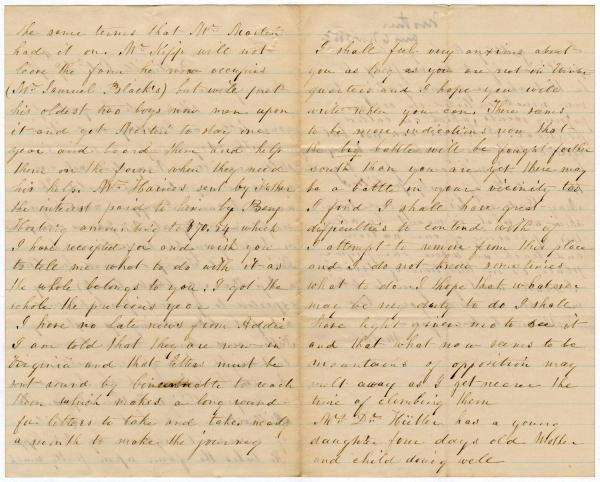 the same terms that Mr Martin
had it on. Mr Kepp will not
leave the farm he now occupies
(Mr Samuel Black's) but will put
his oldest two boys now men upon
it and get Martin to stay one
year and board them and help
them on the farm when they need
his help. Mr Haines sent by Father
the interest paid to him by Benj
amounting to $70.24 which
I have receipted for and wish you
to tell me what to do with it as
the whole belongs to you. I got the
whole the previous year
I have no late news from Addie
I am told that they are now in
Virginia and that letters must be
sent round by Cincinnatte to reach
them which makes a long round
for letters to take and takes nearly
a month to make the journey
Mother
I shall feel very anxious about
you as long as you are not in winter
quarters and I hope you will
write when you can. There seems
to be more indications now that
the big battle will be fought farther
south than you are yet there may
be a battle in your vicinity too
I find I shall have great
difficulties to contend with if
I attempt to remove from this place
and I do not know sometimes
what to do. I hope that whatever
may be my duty to do I shall
have light given me to see it
and that what now seems to be
mountains of opposition may
melt away as I get nearer the
time of climbing them
Mrs Dr Hütter has a young
daughter four days old Mother
and child doing well